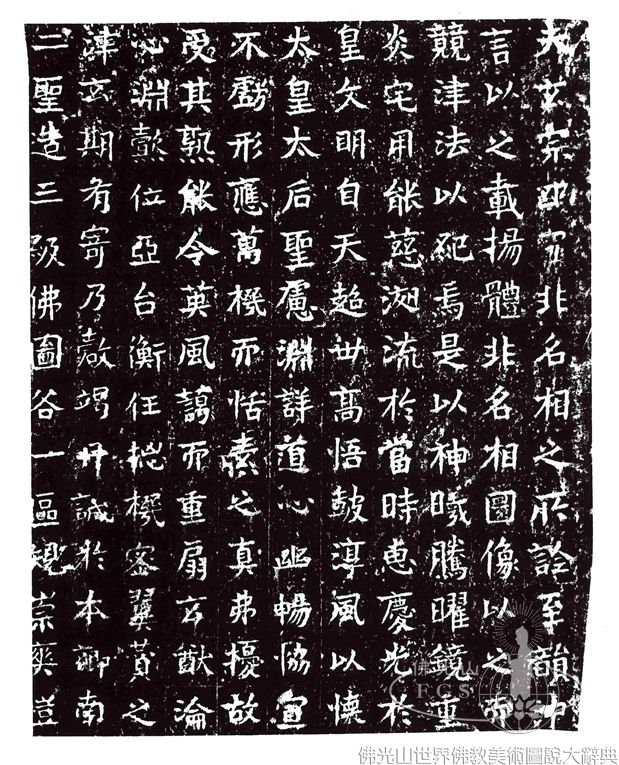 夫玄宗幽寂非名相之所詮至韻沖
言以之載揚體非名相圖像以之
競津法以紀焉是以神曦騰曜鏡重
炎宅用能慈流於當時惠慶光於
皇文明自天超世高悟鼓淳風以懷
太皇太后聖慮淵詳道心幽暢協宣
不虧形應萬機而恬素之真弗擾故
受其孰能令英風藹而重扇玄猷淪
心淵懿位亞台衡任揔機密翼贊之
津玄期有寄乃罄竭丹誠於本鄉南
二聖造三級佛圖各一區規崇爽塏
佛光山
FGS
佛光山世界佛教美術圖說大辭典